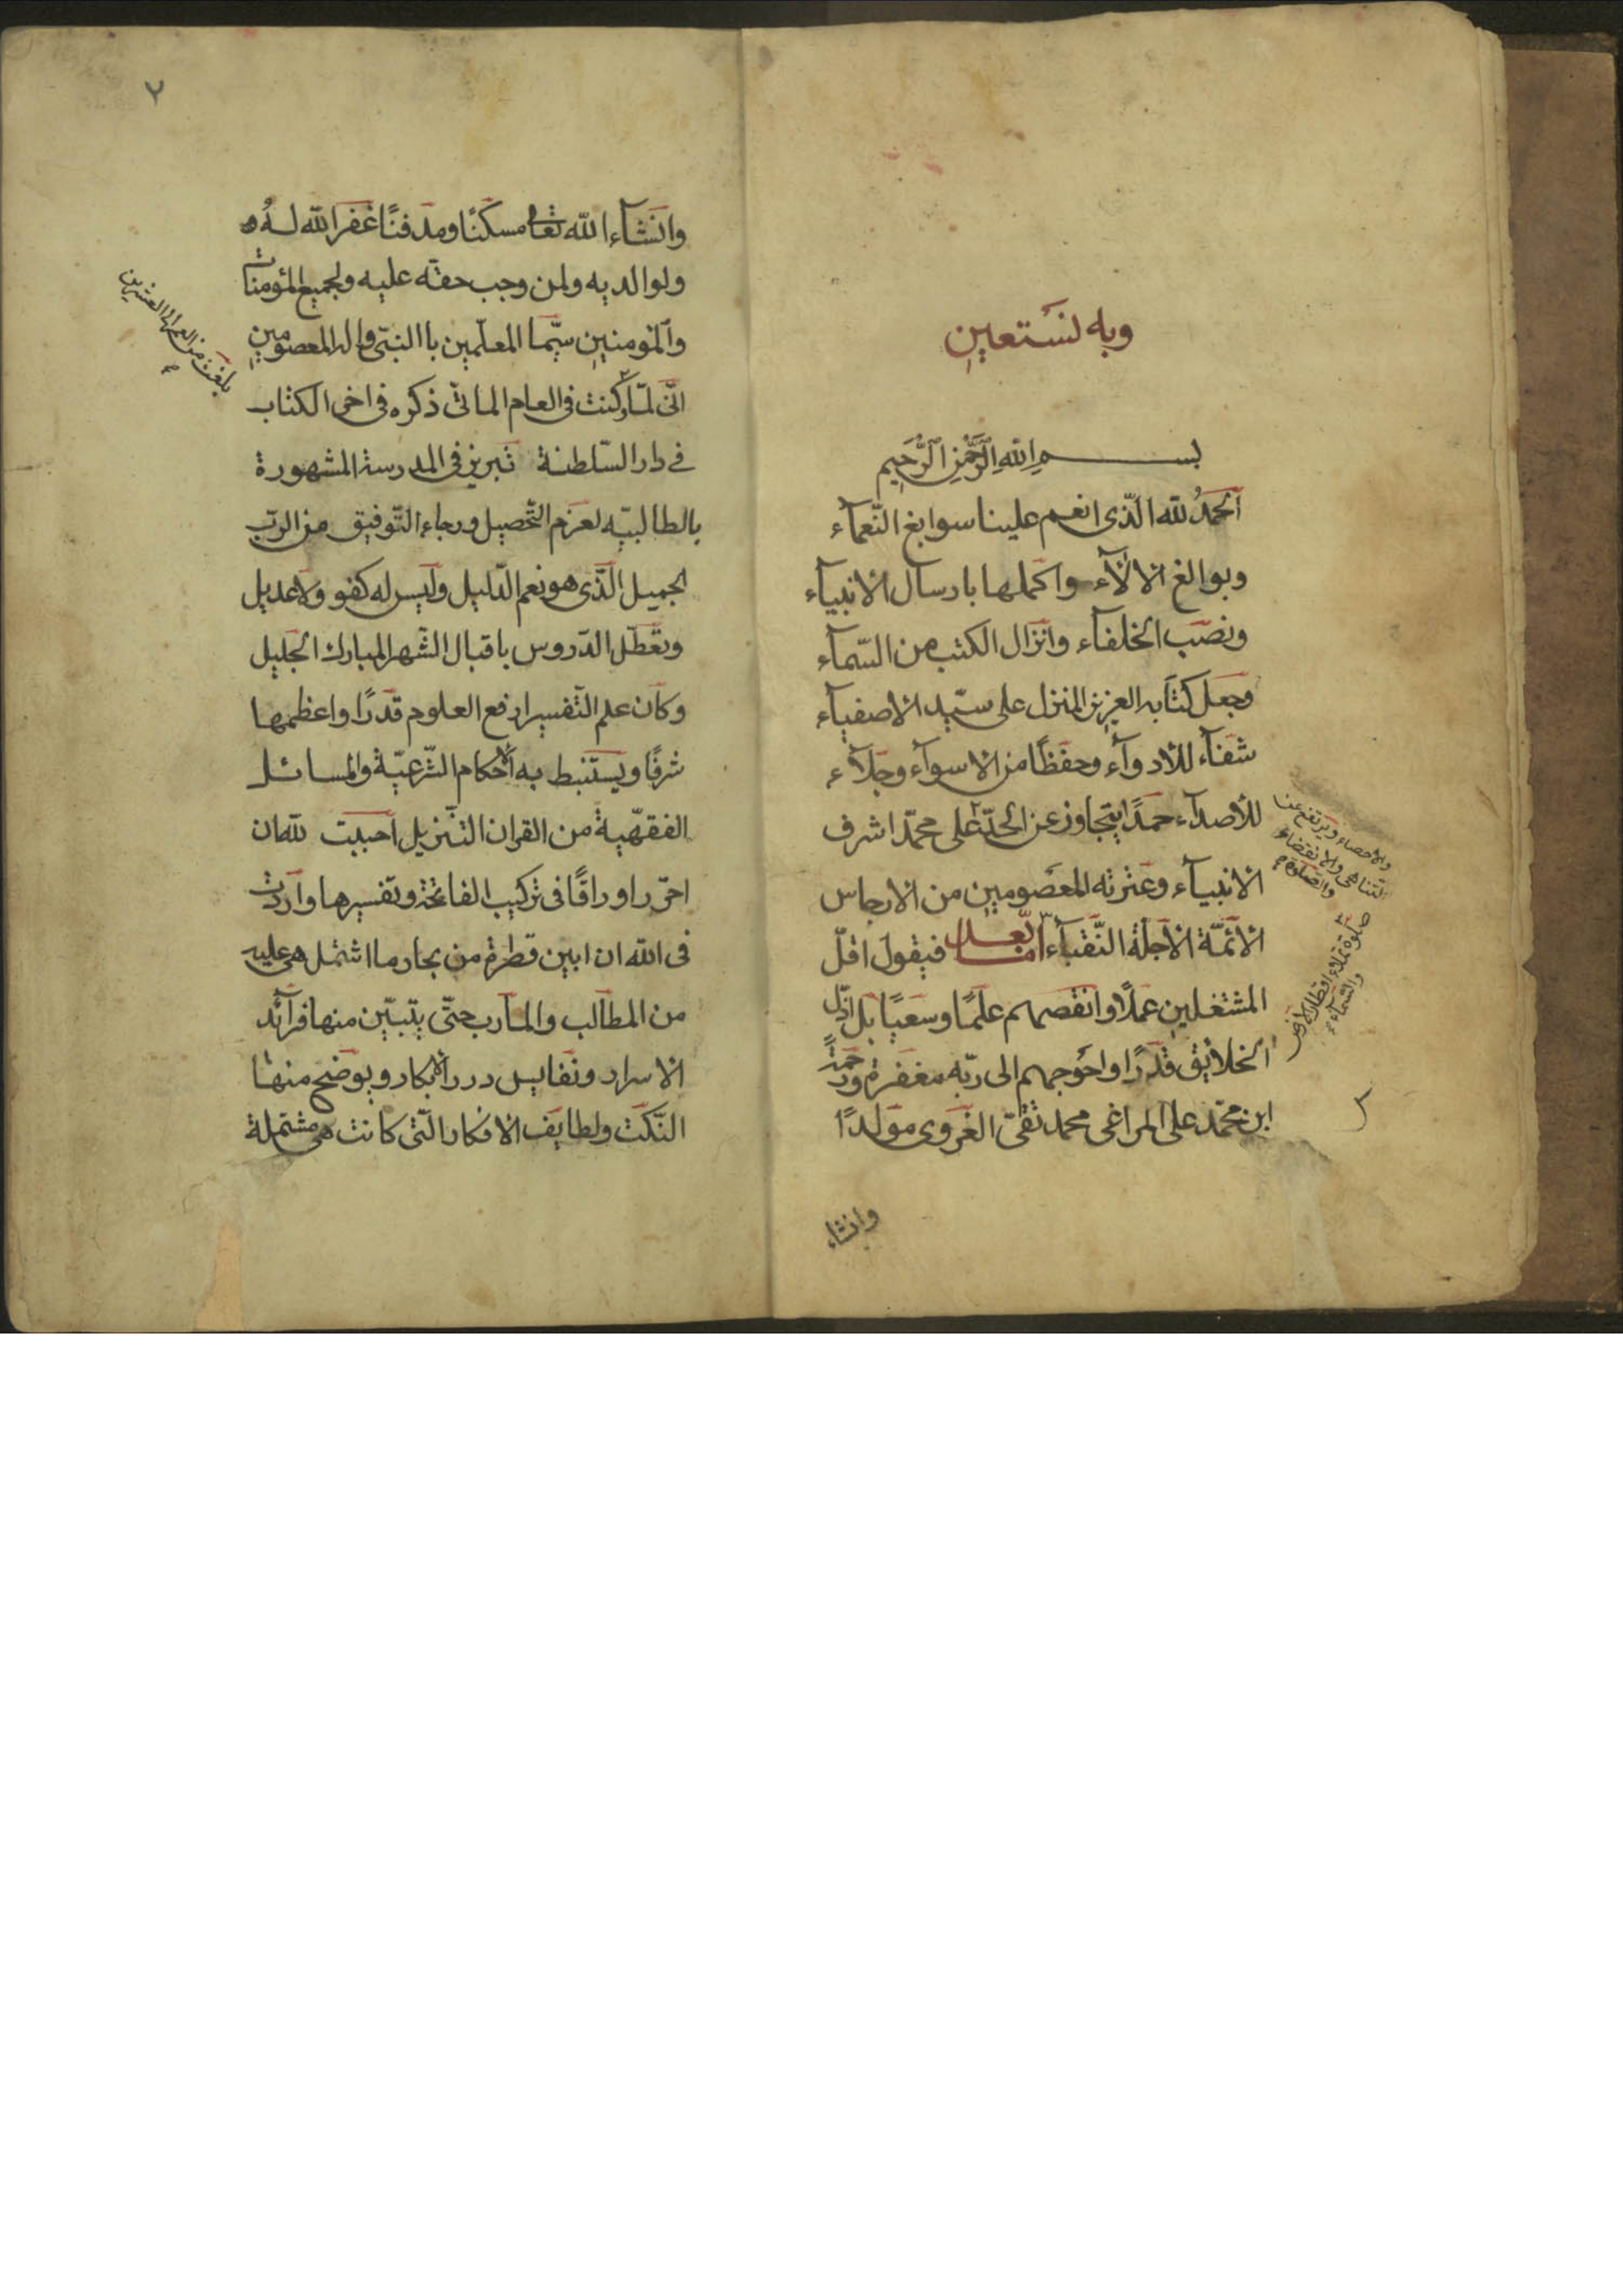 وبه نستعين
بسم اللهِ الرَّحْمٰنِ الرَّحيم
الحمدُ لله الّذى انعم علينا سوابغ النّعمآء
وبوالغ الالآء واكملها بارسال الانبيآء
ونصب الخلفآء وانزال الكتب من السّمآء
وجعل كتابه العزيز المنزل على سيّد الاصفيآء
شفآء للادوآء وحفظًا من الاسوآء وجلآء
للاصدآء حمدًا يتجاوز عن الحدّ على محمّد اشرف
والاحصاء ويرتفع عن
التناهى والانقضاء
والصلوة
الانبيآء وعترته المعصومين من الارجاس
الائمّة الاجلّة النّقبآء امّا بعد فيقول اقلّ
صلوة تملاء اقطار الارض
والسّماء
المشتغلين عملًا وانقصهم علمًا وسعيًا بل اذلّ
الخلايق قدرًا واحوجهم الى ربّه مغفرة ورحمةً
ابن محمّد على المراغى محمد تقىّ الغروى مولدًا
وانشاء
٢
وانشآء الله تعالى مسكنًا ومدفنًا غفر الله لهُ
ولوالديه ولمن وجب حقه عليه ولجميع المؤمنات
والمؤمنين سيّما المعلّمين باالنبّى واله المعصومين
بلغت من العمر العشرين
انّى لمّا كنت فى العام الماتى ذكره فى اخر الكتاب
فى دار السّلطنة تبريز فى المدرسة المشهورة
بالطالبيّه لعزم التّحصيل ورجاء التّوفيق من الربّ
الجميل الّذى هو نعم الدّليل وليس له كفو ولا عديل
وتعطّل الدّروس باقبال الشّهر المبارك الجليل
وكان علم التّفسير ارفع العلوم قدرًا واعظمها
شرفًا ويستنبط به الاحكام الشّرعيّة والمسائل
الفقهّية من القران التّنزيل احببت لله ان
احرّر اوراقًا فى تركيب الفاتحة وتفسيرها واردت
فى الله ان ابين قطرة من بحار ما اشتمل هى عليه
من المطالب والمآرب حتّى يتبيّن منها فرآئد
الاسرار ونفايس درر الابكار ويوضح منها
النّكت ولطايف الافكار الّتى كانت هى مشتملة